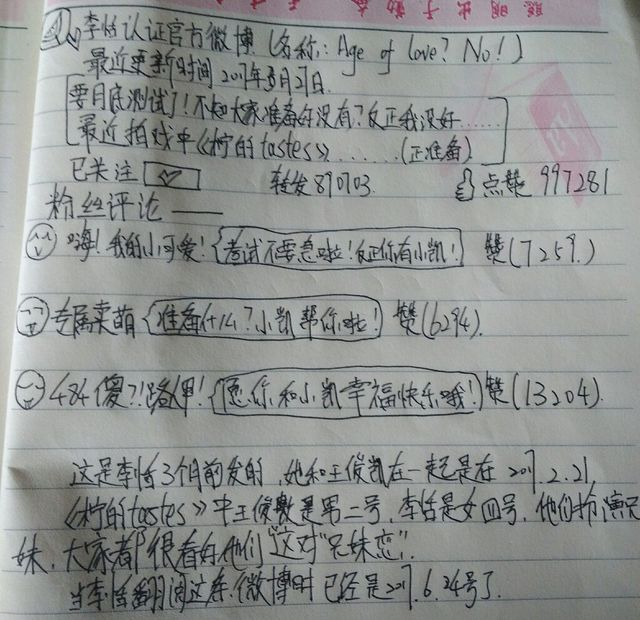 聪明出于勤奋
李恬认证官方微博(名称:Age of love? No!)
最近更新时间2017年3月21日.
要月底测试了!不知大家准备好没有?反正我没好……
最近拍戏中《柠的tastes》……(正准备)
已关注 ✓ 转发890703. 点赞 997281
粉丝评论——
嗨!我的小可爱!{考试不要急啦!反正你有小凯!} 赞(7259.)
专属卖萌{准备什么?小凯帮你啦!} 赞(6294).
484傻?!路人甲!{愿你和小凯幸福快乐哦!}赞(13204).
这是李恬3个月前发的,她和王俊凯在一起是在2017.2.21
《柠的tastes》中王俊凯是男二号,李恬是女四号,他们扮演兄
妹,大家都很看好他们"这对"兄妹恋".
当李恬翻阅这条微博时已经是2017.6.24号了.